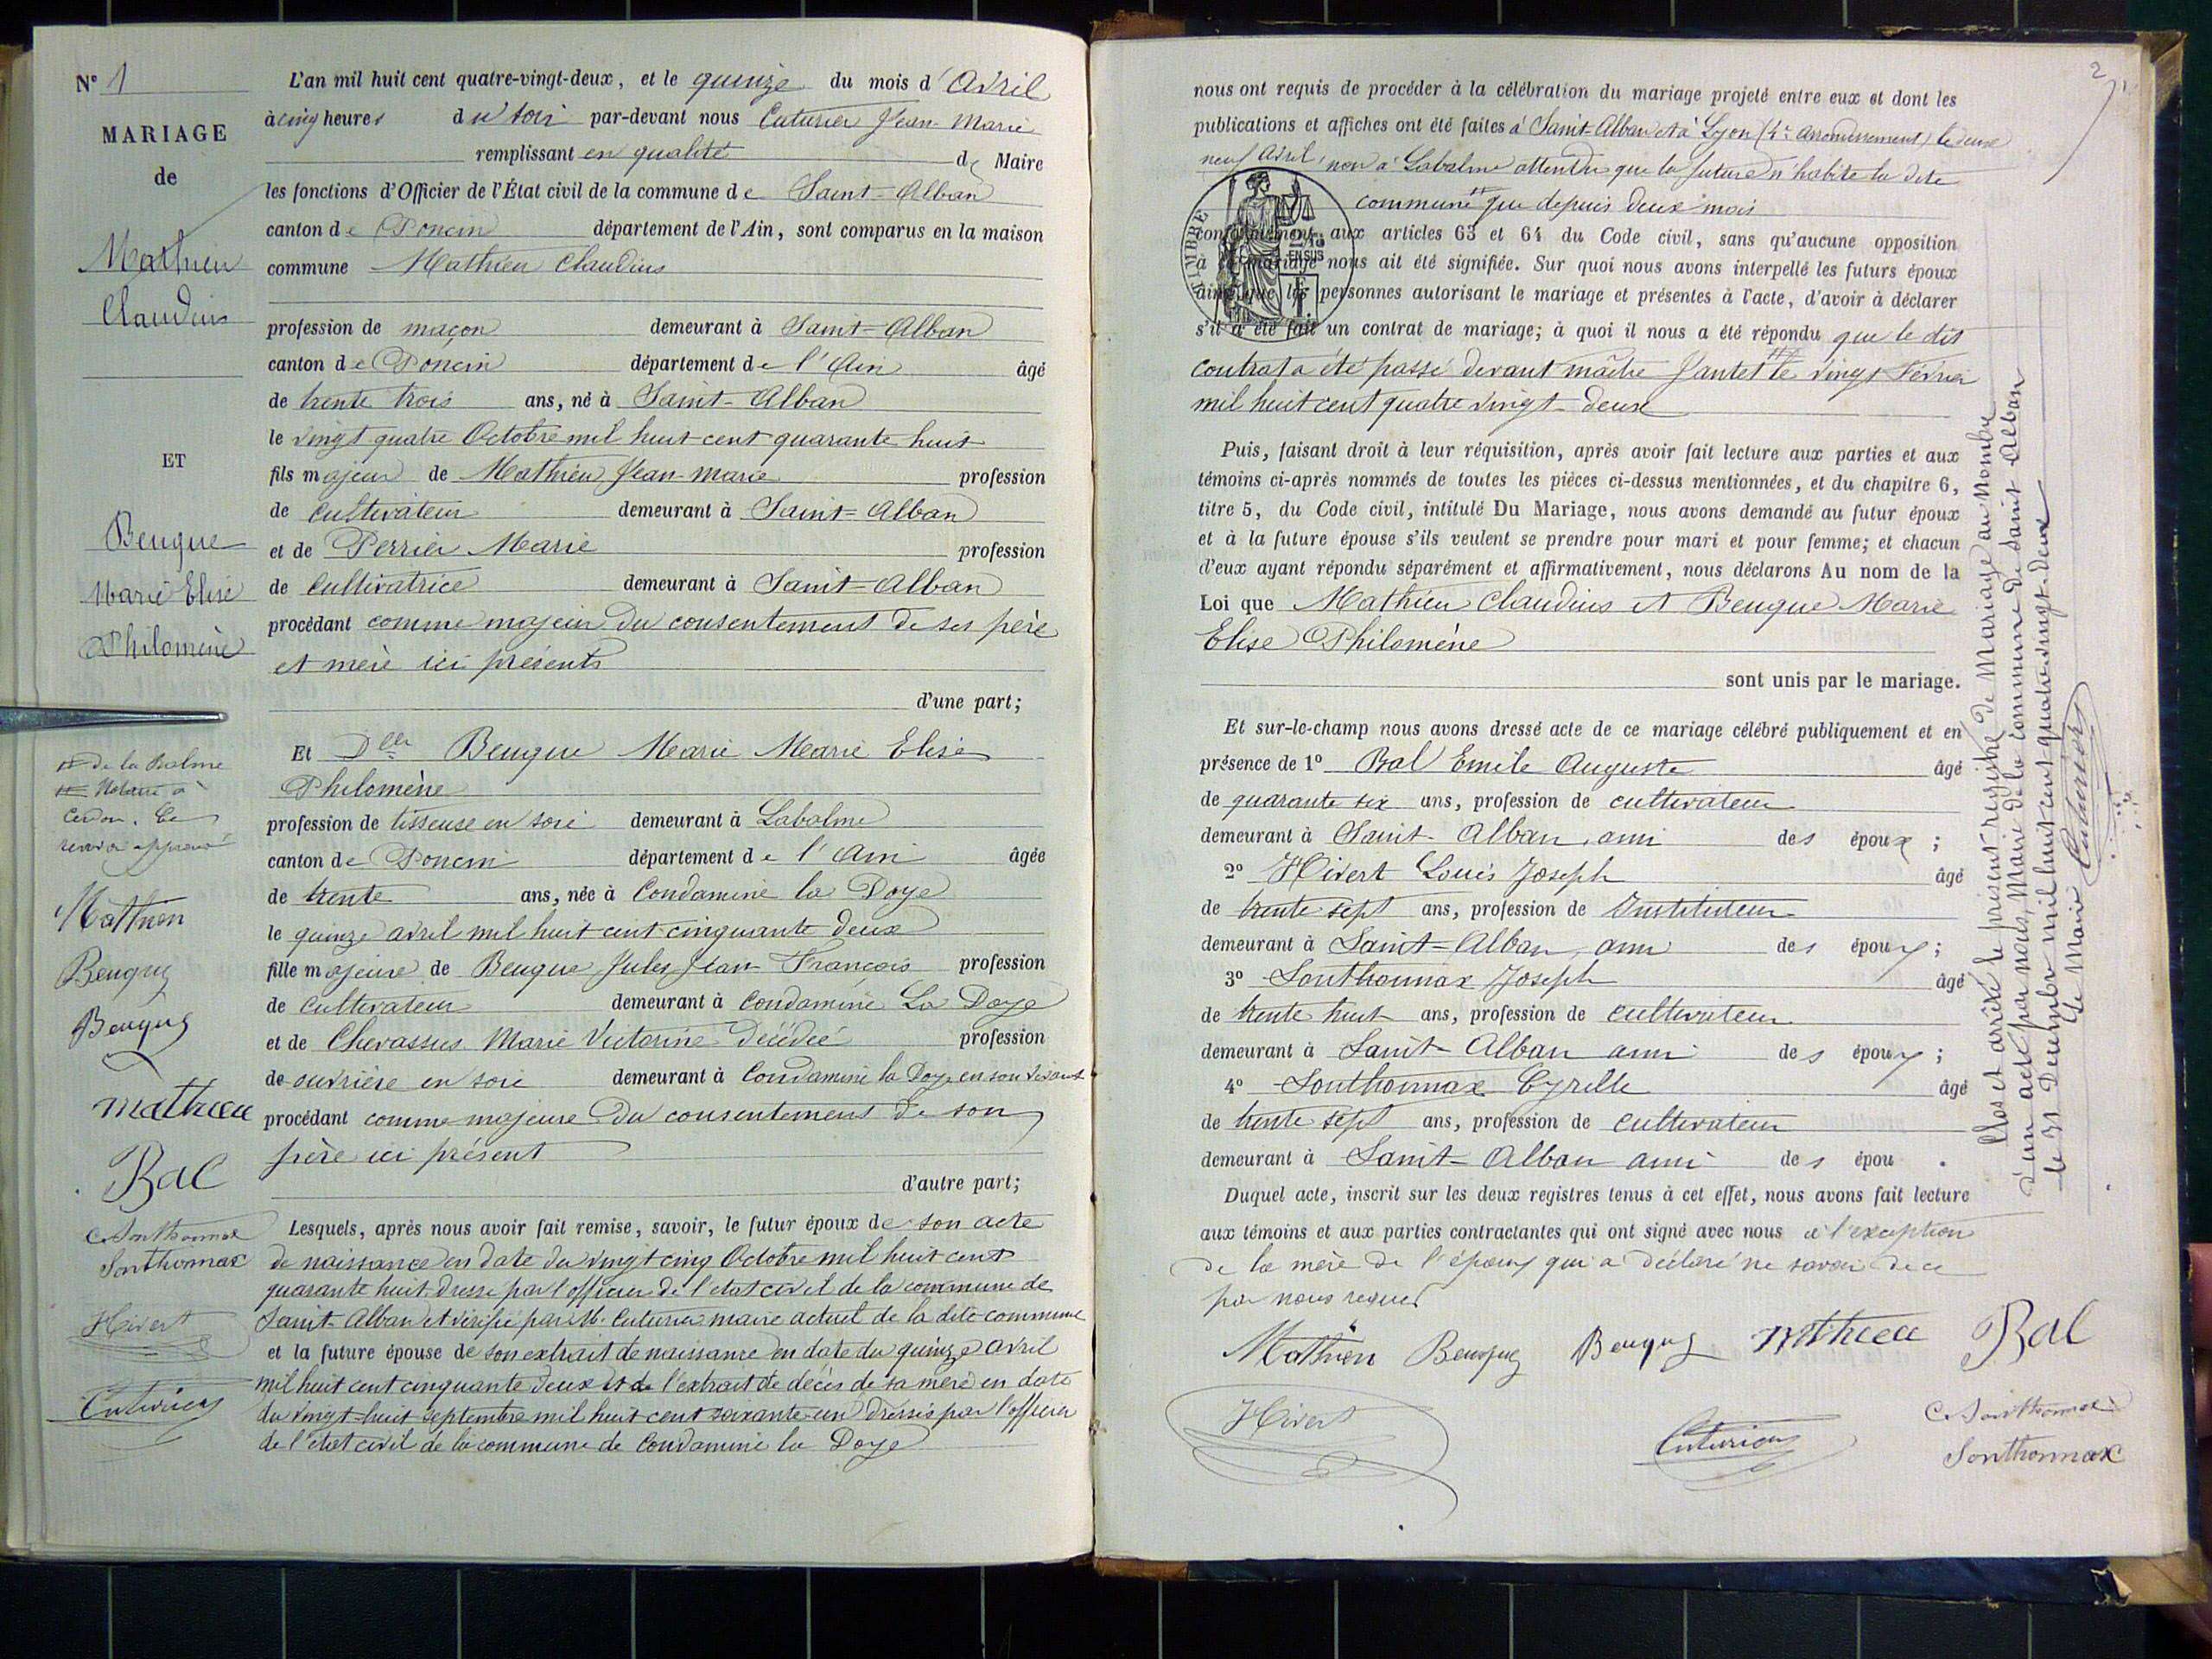 N° 1
MARIAGE
de
Mathieu
Claudius
ET
Beugue
Marie Elise
Philomène
# de la Balme
# Notaire à
Cerdon. Ce
renvoi approuvé
Mathieu
Beugue
Beugue
Mathieu
Bal
C. Sonthonnax
Sonthonnax
Hivert
Cuturier
L'an mil huit cent quatre-vingt-deux, et le quinze du mois d'Avril
à cinq heures du soir par-devant nous Cuturier Jean-Marie
remplissant en qualité de Maire
les fonctions d'Officier de l'État civil de la commune de Saint-Alban
canton de Poncin département de l'Ain, sont comparus en la maison
commune Mathieu Claudius
profession de maçon demeurant à Saint-Alban
canton de Poncin département de l'Ain âgé
de trente trois ans, né à Saint-Alban
le vingt quatre Octobre mil huit cent quarante huit
fils majeur de Mathieu Jean-Marie profession
de cultivateur demeurant à Saint-Alban
et de Perrier Marie profession
de cultivatrice demeurant à Saint-Alban
procédant comme majeur du consentement de ses père
et mère ici présents
d'une part;
Et Dlle Beugue Marie Marie Elise
Philomène
profession de tisseuse en soie demeurant à Labalme
canton de Poncin département de l'Ain âgée
de trente ans, née à Condamine la Doye
le quinze avril mil huit cent cinquante deux
fille majeure de Beugue Jules Jean François profession
de cultivateur demeurant à Condamine La Doye
et de Chevassus Marie Victorine Décédée profession
de ouvrière en soie demeurant à Condamine la Doye en son vivant
procédant comme majeure du consentement de son
père ici présent
d'autre part;
Lesquels, après nous avoir fait remise, savoir, le futur époux de son acte
de naissance en date du vingt cinq Octobre mil huit cent
quarante huit dressé par l'officier de l'état civil de la commune de
Saint-Alban et vérifié par M. Cuturier maire actuel de la dite commune
et la future épouse de son extrait de naissance en date du quinze avril
mil huit cent cinquante deux et de l'extrait de décès de sa mère en date
du vingt-huit septembre mil huit cent soixante-un dressés par l'officier
de l'état civil de la commune de Condamine la Doye
2
nous ont requis de procéder à la célébration du mariage projeté entre eux et dont les
publications et affiches ont été faites à Saint-Alban et à Lyon (4e arrondissement) le deux
neuf Avril, non à Labalme attendu que la future n'habite la dite
commune # que depuis deux mois
TIMBRE
conformément aux articles 63 et 64 du Code civil, sans qu'aucune opposition
à ce mariage nous ait été signifiée. Sur quoi nous avons interpellé les futurs époux
ainsi que les personnes autorisant le mariage et présentes à l'acte, d'avoir à déclarer
s'il a été fait un contrat de mariage; à quoi il nous a été répondu que le dit
contrat a été passé devant maître Jantet # le vingt Février
mil huit cent quatre vingt-deux
Puis, faisant droit à leur réquisition, après avoir fait lecture aux parties et aux
témoins ci-après nommés de toutes les pièces ci-dessus mentionnées, et du chapitre 6,
titre 5, du Code civil, intitulé Du Mariage, nous avons demandé au futur époux
et à la future épouse s'ils veulent se prendre pour mari et pour femme; et chacun
d'eux ayant répondu séparément et affirmativement, nous déclarons Au nom de la
Loi que Mathieu Claudius et Beugue Marie
Elise Philomène
sont unis par le mariage.
Et sur-le-champ nous avons dressé acte de ce mariage célébré publiquement et en
présence de 1° Bal Emile Auguste âgé
de quarante six ans, profession de cultivateur
demeurant à Saint-Alban, ami des époux;
2° Hivert Louis Joseph âgé
de trente-sept ans, profession de Instituteur
demeurant à Saint-Alban, ami des époux;
3° Sonthonnax Joseph âgé
de trente huit ans, profession de cultivateur
demeurant à Saint-Alban ami des époux;
4° Sonthonnax Cyrille âgé
de trente sept ans, profession de cultivateur
demeurant à Saint-Alban ami des épou .
Duquel acte, inscrit sur les deux registres tenus à cet effet, nous avons fait lecture
aux témoins et aux parties contractantes qui ont signé avec nous à l'exception
de la mère de l'époux qui a déclaré ne savoir de ce
par nous requis
Mathieu Beugue Beugue Mathieu Bal
Hivert Cuturier C. Sonthonnax
Sonthonnax
Clos et arrêté le présent registre de Mariage au nombre
d'un acte par nous, Maire de la commune de Saint-Alban
le 31 Décembre mil huit cent quatre-vingt-deux
Le Maire Cuturier